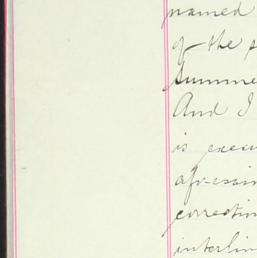 named
of the
Summe
And I
is execu
aforesai
correction
interlin